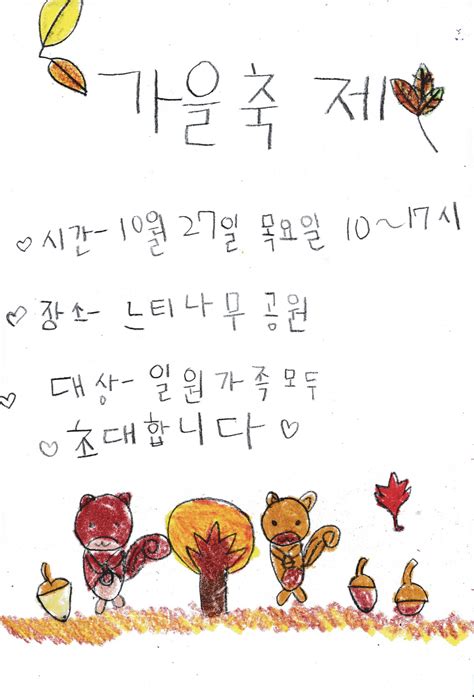 가을축제
♡ 시간- 10월 27일 목요일 10~17시
♡ 장소- 느티나무공원
♡ 대상- 일원가족모두
♡ 초대합니다 ♡